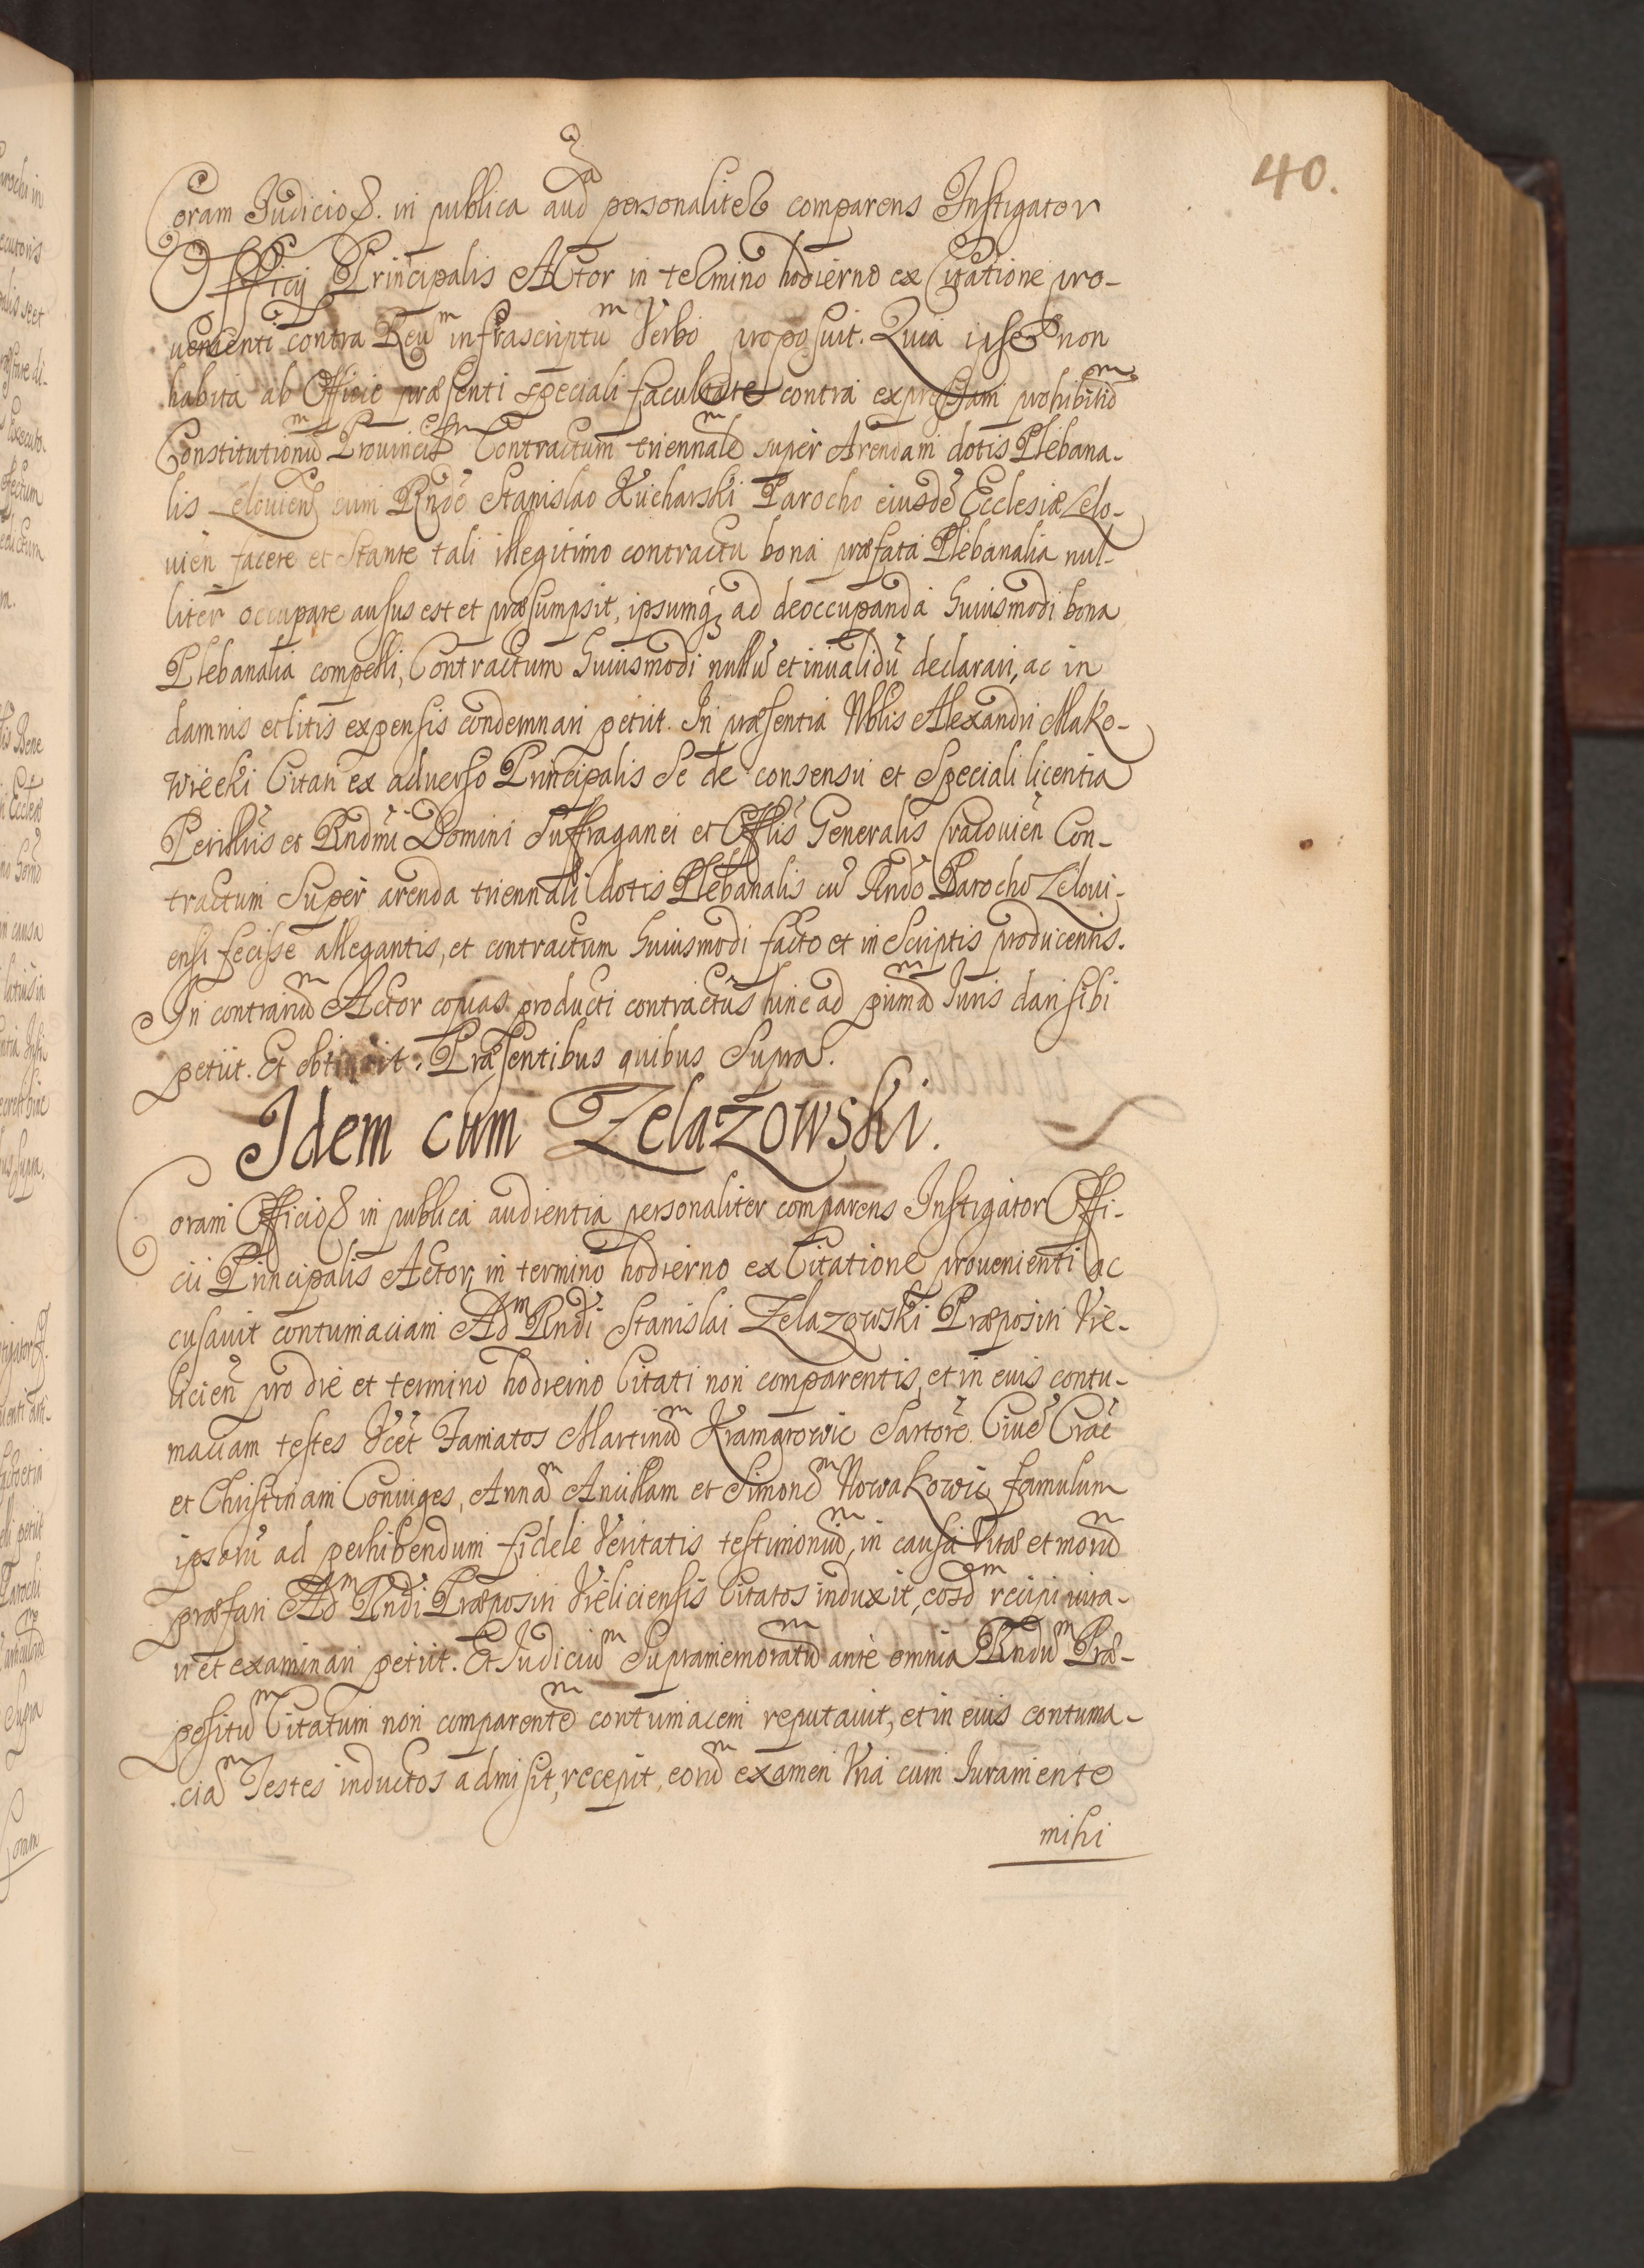 40.
Coram Judicio &. in publica aud<sup>a</sup> personaliter comparens Instigator
Officij Principalis Actor in termino hodierno ex Citatione pro-
uenienti contra Reu<sup>m</sup> infrascriptu<sup>m</sup> Verbo proposuit. Quia ipse non
habita ab Officio præsenti speciali facultate contra expressam prohibitio<sup>m</sup>
Constitutionu<sup>m</sup> Prouincis Contractum triennale<sup>m</sup> super Arendam dotis Plebana-
lis Leloviens cum Rndo Stanislao Kucharski Parocho eiusdē Ecclesiæ Lelo-
uien facere et Stante tali illegitimo contractu bona præfata Plebanalia nul-
liter occupare ausus est et præsumpsit, ipsumq; ad deoccupanda huiusmodi bona
Plebanalia compelli, Contractum huiusmodi nullū et inualidū declarari, ac in
damnis et litis expensis condemnari petiit. In præsentia Nblis Alexandri Mako-
wiecki Citati ex aduerso Principalis Se de consensu et Speciali licentia
Perillris et Rndmi Domini Suffraganei et Offlis Generalis Cracouien Con-
tractum Super arenda triennali dotis Plebanalis cū Rndo Parocho Leloui-
ensi fecisse allegantis, et contractum huiusmodi facto et in Scriptis producentis.
In contrariu<sup>m</sup> Actor copias producti contractus hinc ad prima<sup>m</sup> Iuris dari sibi
petiit. Et obtinuit. Præsentibus quibus Supra.
Idem cum Zelazowski.
Coram Officio & in publica audientia personaliter comparens Instigator Offi-
cii Principalis Actor, in termino hodierno ex Citatione prouenienti ac
cusauit contumaciam Ad<sup>m</sup> Rndi Stanislai Zelazowski Præpositi Vie-
licien pro die et termino hodierno Citati non comparentis, et in eius contu-
maciam testes Vcet Famatos Martinu<sup>m</sup> Kramarowic Sartorē Ciuē Crac
et Christinam Coniuges, Anna<sup>m</sup> Ancillam et Simone<sup>m</sup> Nowakowic famulum
ipsorū ad perhibendum fidele Veritatis testimoniu<sup>m</sup>, in causa Vitæ et moru<sup>m</sup>
præfati Ad<sup>m</sup> Rndi Præpositi Vieliciensis Citatos induxit, eosd<sup>m</sup> recipi iura-
ri et examinari petiit. Et Judiciu<sup>m</sup> Supramemoratu<sup>m</sup> ante omnia Rndu<sup>m</sup> Præ-
positu<sup>m</sup> Citatum non comparente<sup>m</sup> contumacem reputauit, et in eius contuma-
cia<sup>m</sup> Testes inductos admisit, recepit, eoru<sup>m</sup> examen Vna cum Iuramento
mihi